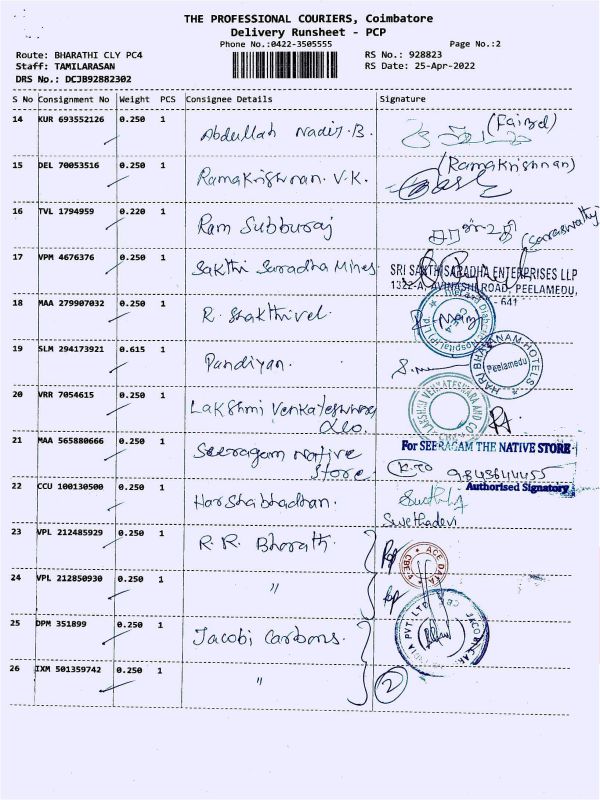 THE PROFESSIONAL COURIERS, Coimbatore
Delivery Runsheet - PCP
Phone No.:0422-3505555
Page No.:2
Route: BHARATHI CLY PC4
RS No.: 928823
Staff: TAMILARASAN
RS Date: 25-Apr-2022
DRS No.: DCJB92882302
S No Consignment No Weight PCS Consignee Details Signature
14 KUR 693552126 0.250 1 Abdullah Nadir.B. (Faizel)
15 DEL 70053516 0.250 1 Ramakrishnan. V.K. (Ramakrishnan)
16 TVL 1794959 0.220 1 Ram Subburaj சரஸ்வதி (Saraswathy)
17 VPM 4676376 0.250 1 Sakthi Saradha Mines SRI SAKTHI SARADHA ENTERPRISES LLP
1322-A, AVINASHI ROAD, PEELAMEDU,
- 641
18 MAA 279907032 0.250 1 R. Shakthivel.
19 SLM 294173921 0.615 1 Pandiyan. HARI BHAVANAM HOTELS
Peelamedu
20 VRR 7054615 0.250 1 Lakshmi Venkateswara LAKSHMI VENKATESHWARA AND CO
21 MAA 565880666 0.250 1 Seeragam Native For SEERAGAM THE NATIVE STORE
Store
Authorised Signatory
22 CCU 100130500 0.250 1 Harshabhadhan.
Swethadevi
23 VPL 212485929 0.250 1 R.R. Bharath. ACE DATA
CBE
24 VPL 212850930 0.250 1 "
25 DPM 351899 0.250 1 Jacobi Carbons.
26 IXM 501359742 0.250 1 " 2